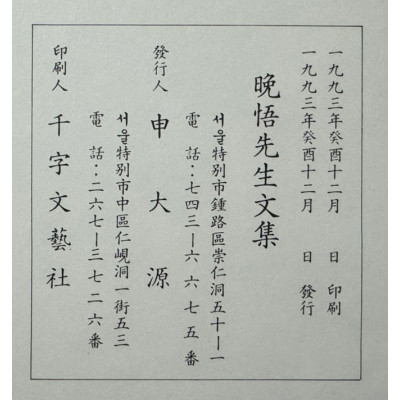 一九九三年癸酉十二月 日 印刷
一九九三年癸酉十二月 日 發行
晚悟先生文集
서울特別市鍾路區崇仁洞五十一一
電話:七四三一六六七五番
發行人 申大源
서울特別市中區仁峴洞一街五三
電話:二六七一三七二六番
印刷人 千字文藝社